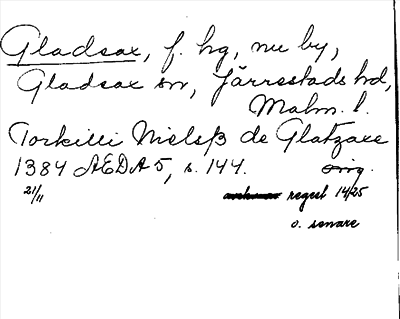 Gladsax, f. hg, nu by,
Gladsax sn, Järrestads hd,
Malm. l.
Torkilli Nielsß de Glatzaxe
1384 ÆDA 5, s. 144. orig.
21/11 regest 14/25
o. senare